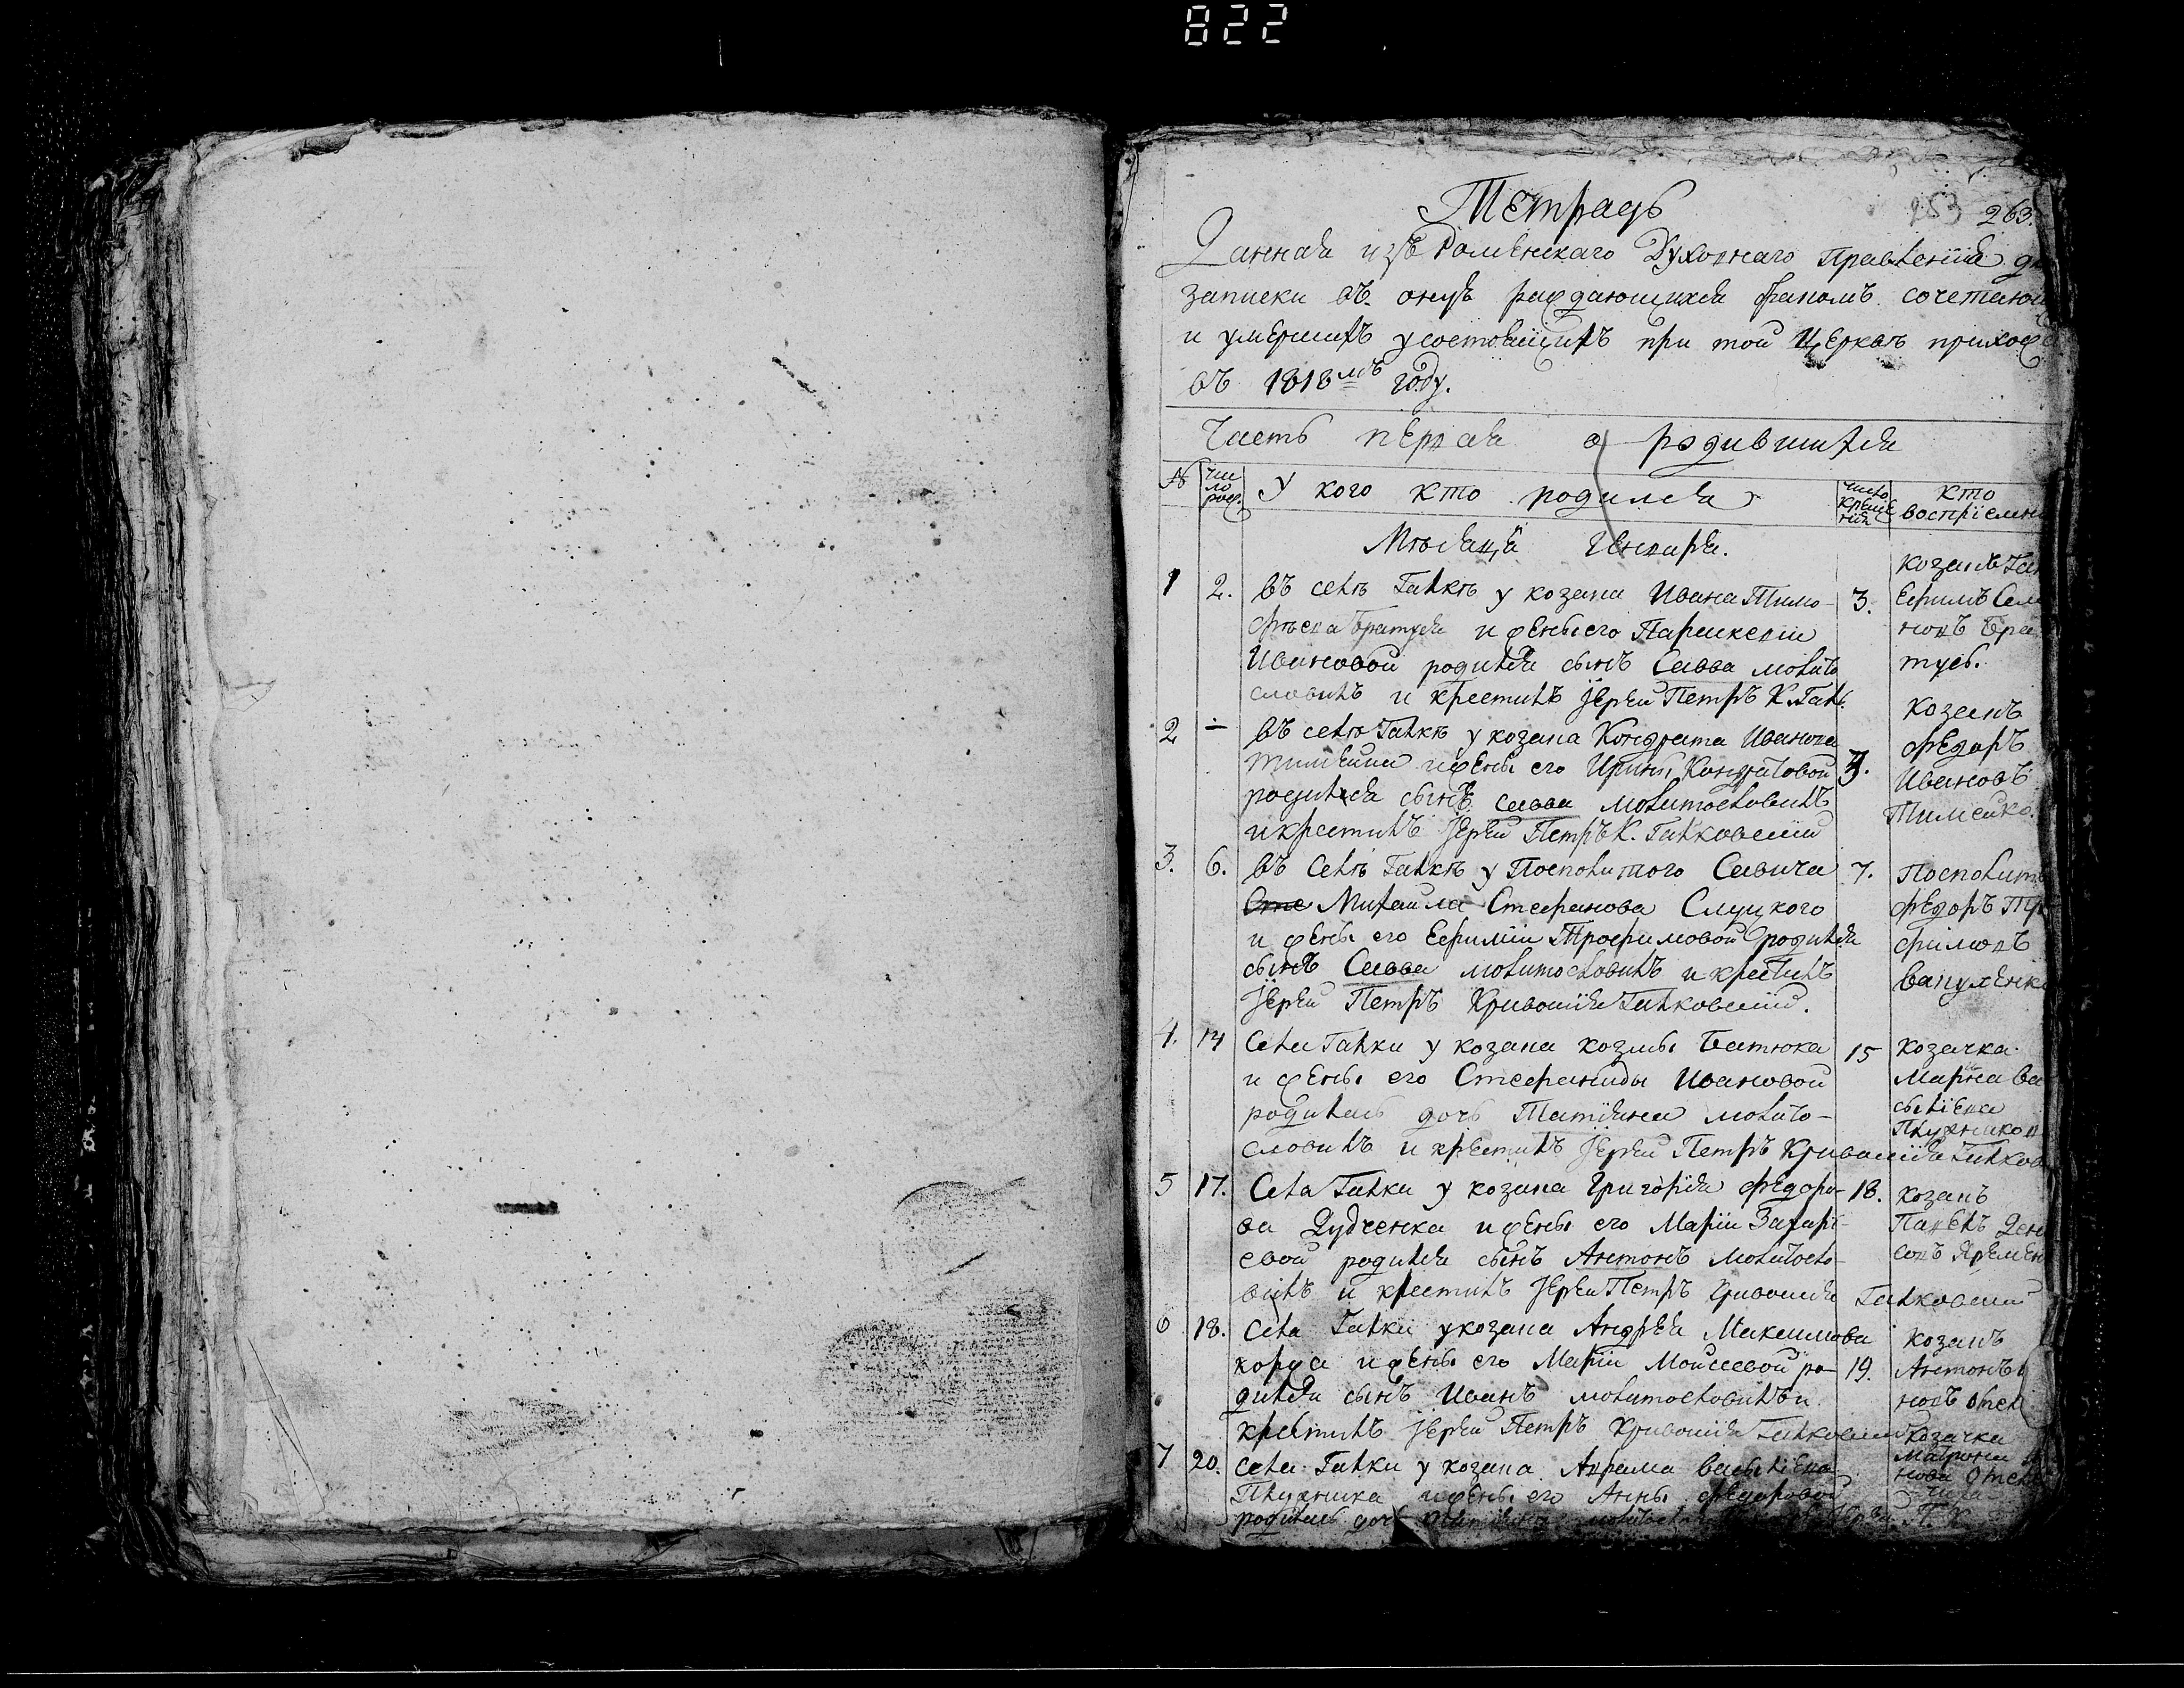 822
Тетрадь
253 263
Данная изъ Роменскаго Духовнаго Правленія
записки въ онуъ раждающихся бракомъ сочетаю
и умершихъ у состоящихъ при той Церквѣ прихо
въ 1818мъ году.
Часть первая о родившихся
№ число рож. У кого кто родился число крещенія кто воспріемни
Мѣсяца Генваря.
1 2. въ селѣ Галкѣ у козака Ивана Тимо-
фѣева Братуся и жены его Параскевіи
Ивановой родился сынъ Савва молито
словилъ и крестилъ Іерей Петръ К. Галк.
3.
козакъ Гал
Ефимъ Сем
новъ Бра
тусь.
2 – въ селѣ Галкѣ у козака Кондрата Иванова
и жены его Ирины Кондратовой
родился сынъ Савва молитословилъ
и крестилъ Іерей Петръ К. Галковскій
3.
козакъ
Федоръ
Ивановъ
3. 6. въ Селѣ Галкѣ у Посполитого Савича
Сте Михаила Стефанова Слуцкого
и жены его Ефиміи Трофимовой родился
сынъ Савва молитословилъ и крестилъ
Іерей Петръ Кривошія Галковскій.
7.
Посполит
Федоръ
фимовъ
4. 14 Села Галки у козака козмы Батюка
и жены его Стефаниды Ивановой
родилась дочь Татіяна молито-
словилъ и крестилъ Іерей Петръ Кривошія Галков
15
козачка
Марѳа Ва
сыліева
5 17. Села Галки у козака Григорія Федоро-
ва Дудченка и жены его Маріи Захарі-
евой родился сынъ Антонъ молитосло-
вилъ и крестилъ Іерей Петръ Кривошія Галковскій
18.
козакъ
Павелъ Дени
совъ Яремен
6 18. Села Галки у козака Андрея Максимова
коржа и жены его Маріи Моисеевой ро-
дился сынъ Иванъ молитословилъ и
крестилъ Іерей Петръ Кривошія Галковскій
19.
козакъ
Антонъ
новъ
7 20. села Галки у козака Аврама Васыліева
и жены его Анны Федоровой
родилась дочь Татіяна
козачка
Матрона
нова